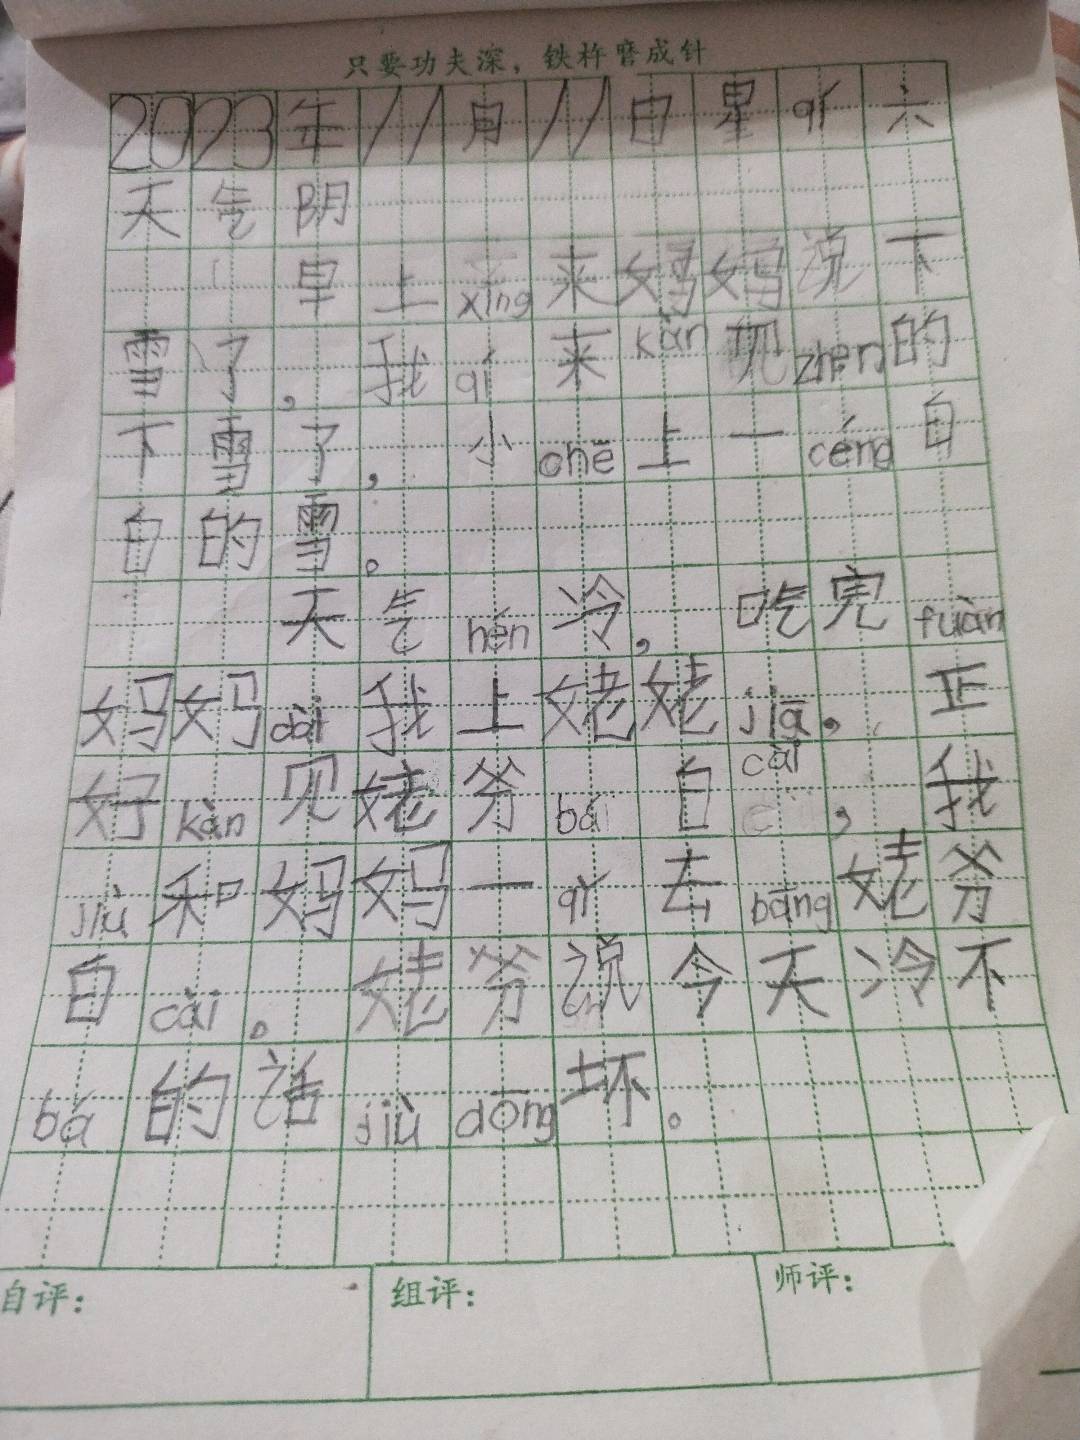 只要功夫深，铁杵磨成针
2023年11月11日星qǐ六
天气阴
早上xǐng来妈妈说下
雪了，我qǐ来kàn现zhēn的
下雪了，小chē上一céng白
白的雪。
天气hén冷，吃完fuàn
妈妈dài我上姥姥jiā，正
好kàn见姥爷bá白cài，我
jiù和妈妈一qǐ去bāng姥爷
白cài。姥爷说今天冷不
bá的话jiù dōng坏。
自评：
组评：
师评：